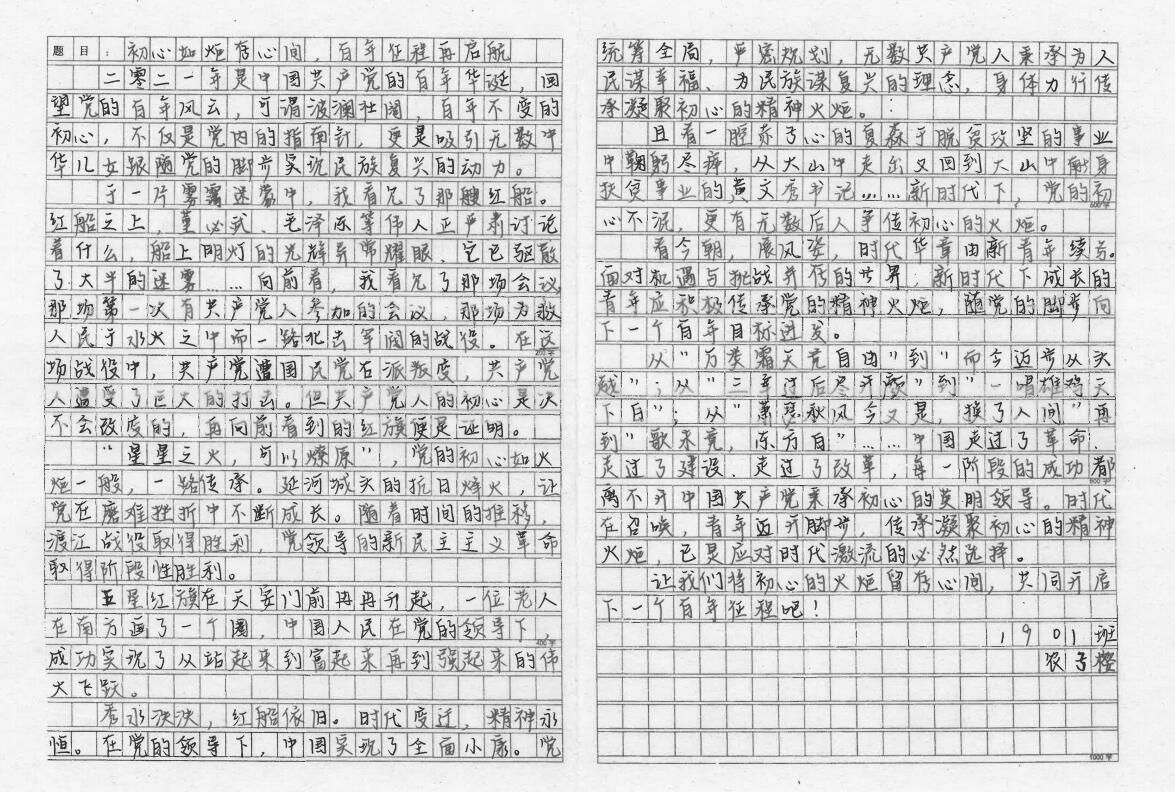 题目：初心如炬存心间，百年征程再启航
二零二一年是中国共产党的百年华诞，回
望党的百年风云，可谓波澜壮阔，百年不变的
初心，不仅是党内的指南针，更是吸引无数中
华儿女跟随党的脚步实现民族复兴的动力。
于一片雾霭迷蒙中，我看见了那艘红船。
红船之上，董必武、毛泽东等伟人正严肃讨论
着什么，船上明灯的光辉异常耀眼，它已驱散
了大半的迷雾……向前看，我看见了那场会议，
那场第一次有共产党人参加的会议，那场为救
人民于水火之中而一路北击军阀的战役。在这
200字
场战役中，共产党遭国民党右派叛变，共产党
人遭受了巨大的打击。但共产党人的初心是决
不会改变的，再向前看到的红旗便是证明。
“星星之火，可以燎原”，党的初心如火
炬一般，一路传承。延河城头的抗日烽火，让
党在磨难挫折中不断成长。随着时间的推移，
渡江战役取得胜利，党领导的新民主主义革命
取得阶段性胜利。
五星红旗在天安门前冉冉升起，一位老人
在南方画了一个圈，中国人民在党的领导下，
400字
成功实现了从站起来到富起来再到强起来的伟
大飞跃。
秀水泱泱，红船依旧。时代变迁，精神永
恒。在党的领导下，中国实现了全面小康。党
统筹全局，严密规划，无数共产党人秉承为人
民谋幸福、为民族谋复兴的理念，身体力行传
承凝聚初心的精神火炬。
且看一腔赤子心的夏森于脱贫攻坚的事业
中鞠躬尽瘁，从大山中走出又回到大山中献身
扶贫事业的黄文秀书记……新时代下，党的初
600字
心不泯，更有无数后人争传初心的火炬。
看今朝，展风姿，时代华章由新青年续写。
面对机遇与挑战并存的世界，新时代下成长的
青年应积极传承党的精神火炬，随党的脚步向
下一个百年目标进发。
从“万类霜天竞自由”到“而今迈步从头
越”；从“三军过后尽开颜”到“一唱雄鸡天
下白”；从“萧瑟秋风今又是，换了人间”再
到“歌未竟，东方白”……中国走过了革命、
走过了建设、走过了改革，每一阶段的成功都
800字
离不开中国共产党秉承初心的英明领导。时代
在召唤，青年迈开脚步，传承凝聚初心的精神
火炬，已是应对时代激流的必然选择。
让我们将初心的火炬留存心间，共同开启
下一个百年征程吧！
1901班
农子
1000字